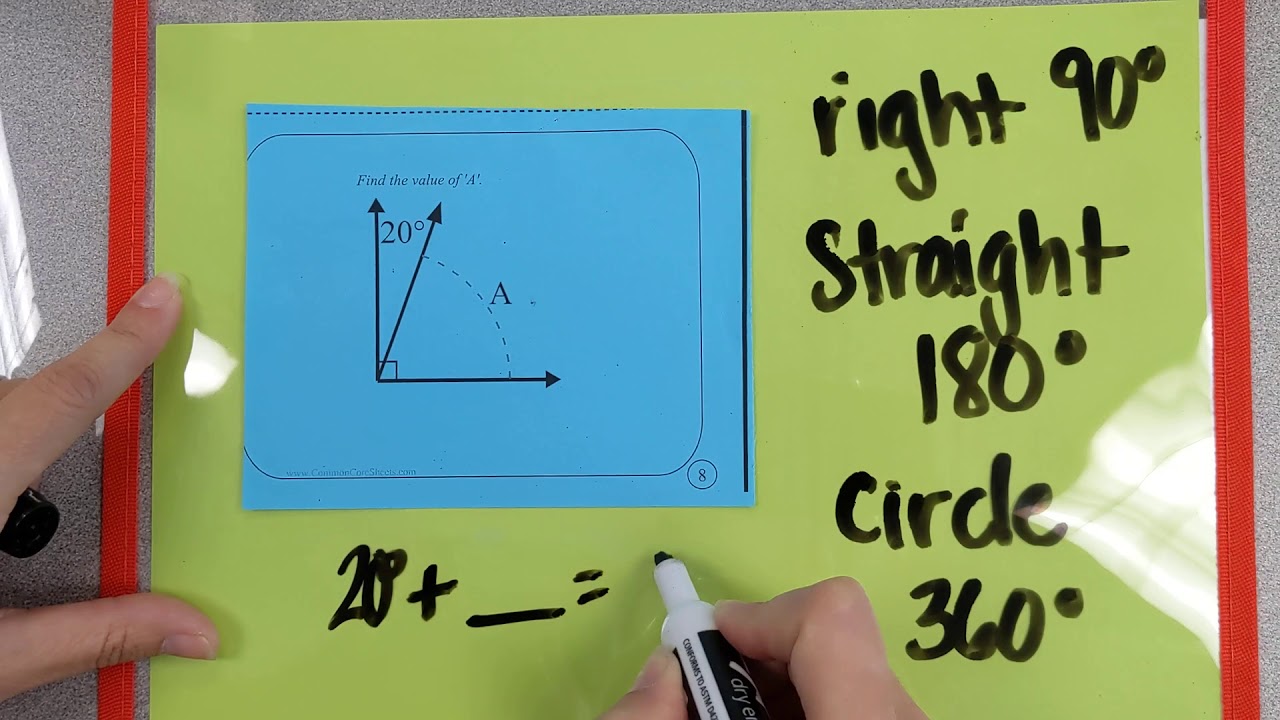 Find the value of 'A'.
20°
A
www.CommonCoreSheets.com
8
right 90°
Straight
180°
Circle
360°
20° + __ =
CONFORMS TO ASTM
dry er